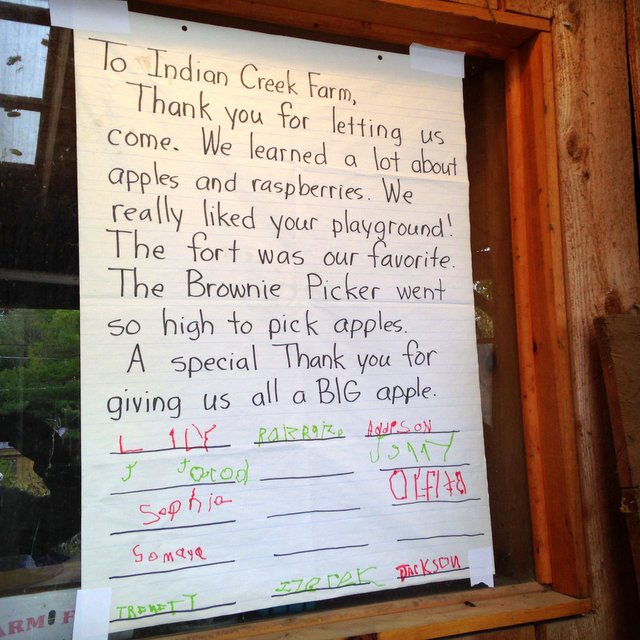 To Indian Creek Farm,
Thank you for letting us
come. We learned a lot about
apples and raspberries. We
really liked your playground!
The fort was our favorite.
The Brownie Picker went
so high to pick apples.
A special Thank you for
giving us all a BIG apple.
LILY Addison
J Jorod JONY
Sophia
Somaya
TREWETT Derek JACKSON
ARM